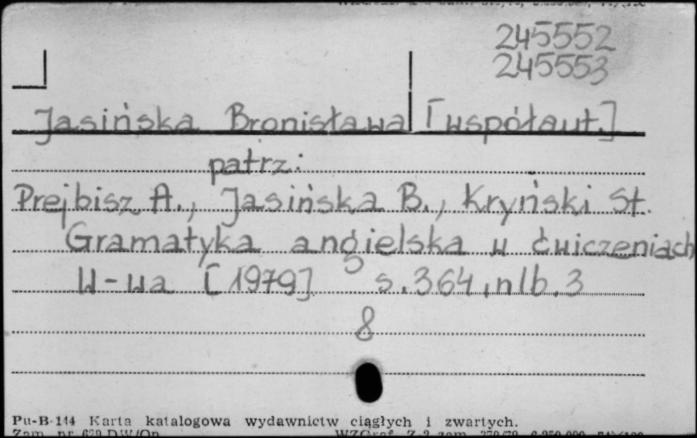 245552
245553
Jasińska Bronisława [współaut.]
patrz:
Prejbisz A., Jasińska B., Kryński St.
Gramatyka angielska w ćwiczeniach
W-wa [1979] s. 364, nlb. 3
8
Pu-B-144 Karta katalogowa wydawnictw ciągłych i zwartych.
Zam. nr